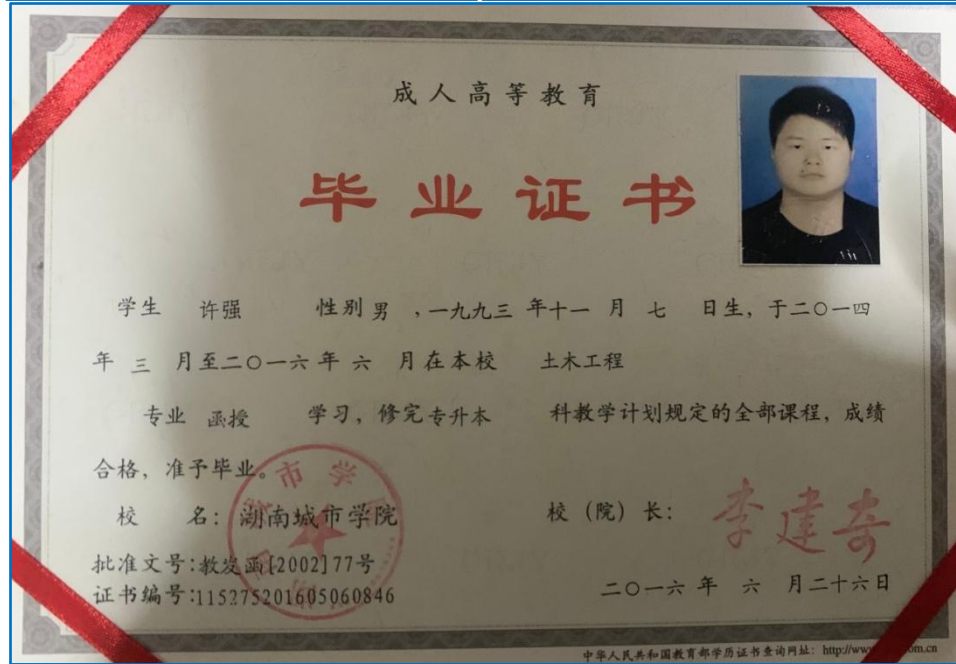 成人高等教育
毕业证书
学生 许强 性别 男 ，一九九三 年十一 月 七 日生，于二〇一四
年 三 月至二〇一六 年 六 月在本校 土木工程
专业 函授 学习，修完专升本 科教学计划规定的全部课程，成绩
合格，准予毕业。
校 名：湖南城市学院
校（院）长：李建奇
批准文号:教发函[2002]77号
证书编号:115275201605060846
二〇一六 年 六 月二十六日
中华人民共和国教育部学历证书查询网址：http://www
om.cn